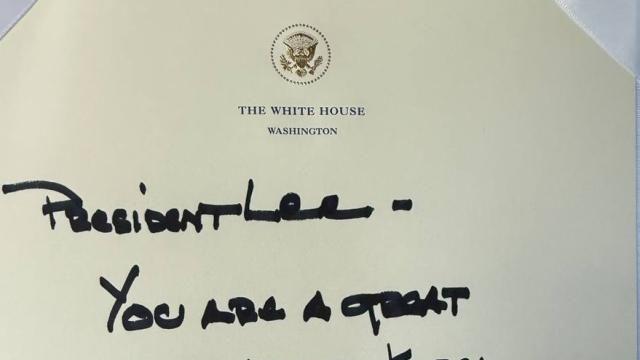 THE WHITE HOUSE
WASHINGTON
PRESIDENT LEE -
YOU ARE A GREAT